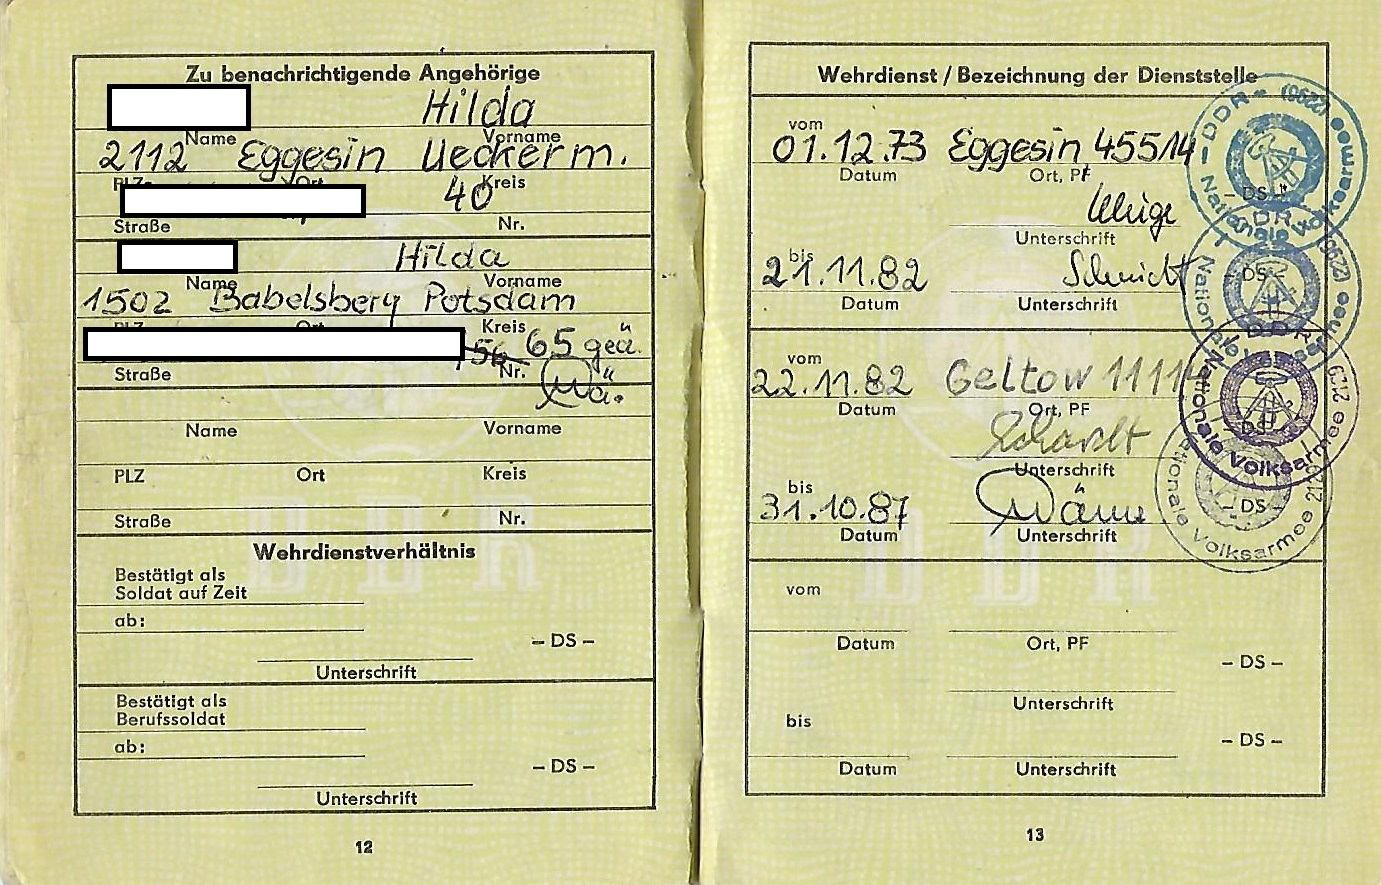 Zu benachrichtigende Angehörige
Hilda
Name Vorname
2112 Eggesin Ueckerm.
PLZ Ort Kreis
40
Straße Nr.
Hilda
Name Vorname
1502 Babelsberg Potsdam
PLZ Ort Kreis
65 geä.
Straße Nr.
Wä.
Name Vorname
PLZ Ort Kreis
Straße Nr.
Wehrdienstverhältnis
Bestätigt als
Soldat auf Zeit
ab:
– DS –
Unterschrift
Bestätigt als
Berufssoldat
ab:
– DS –
Unterschrift
12
Wehrdienst / Bezeichnung der Dienststelle
vom
01.12.73 Eggesin, 45514
Datum Ort, PF
– DS –
Unterschrift
bis
21.11.82 Schmidt
Datum Unterschrift
– DS –
vom
22.11.82 Geltow 1111
Datum Ort, PF
– DS –
Unterschrift
bis
31.10.87
Datum Unterschrift
– DS –
vom
Datum Ort, PF
– DS –
Unterschrift
bis
– DS –
Datum Unterschrift
13
– DDR – Nationale Volksarmee
DDR Nationale Volksarmee
DDR Nationale Volksarmee
Nationale Volksarmee
DDR
DDR